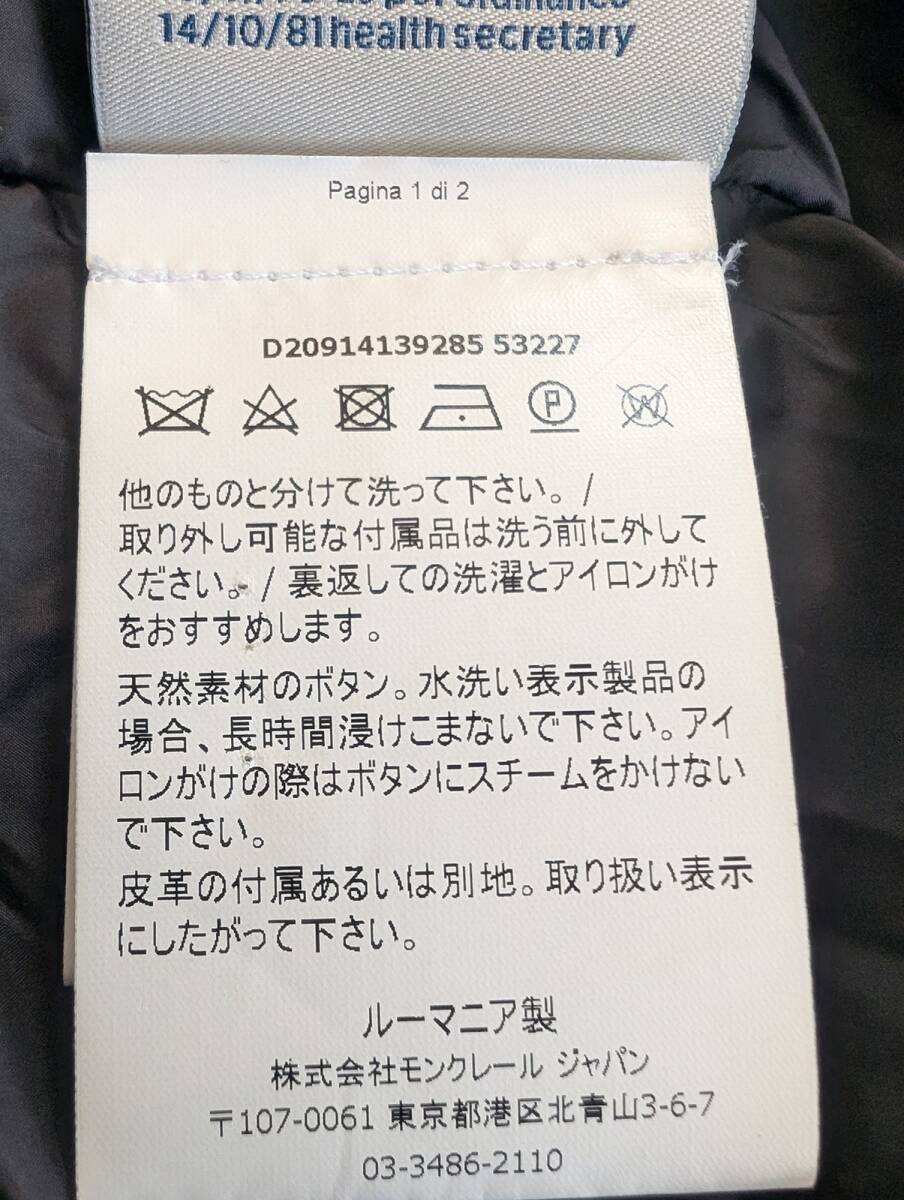 14/10/81 health secretary
Pagina 1 di 2
D20914139285 53227
P
W
他のものと分けて洗って下さい。/
取り外し可能な付属品は洗う前に外して
ください。/ 裏返しての洗濯とアイロンがけ
をおすすめします。
天然素材のボタン。水洗い表示製品の
場合、長時間浸けこまないで下さい。アイ
ロンがけの際はボタンにスチームをかけない
で下さい。
皮革の付属あるいは別地。取り扱い表示
にしたがって下さい。
ルーマニア製
株式会社モンクレール ジャパン
〒107-0061 東京都港区北青山3-6-7
03-3486-2110